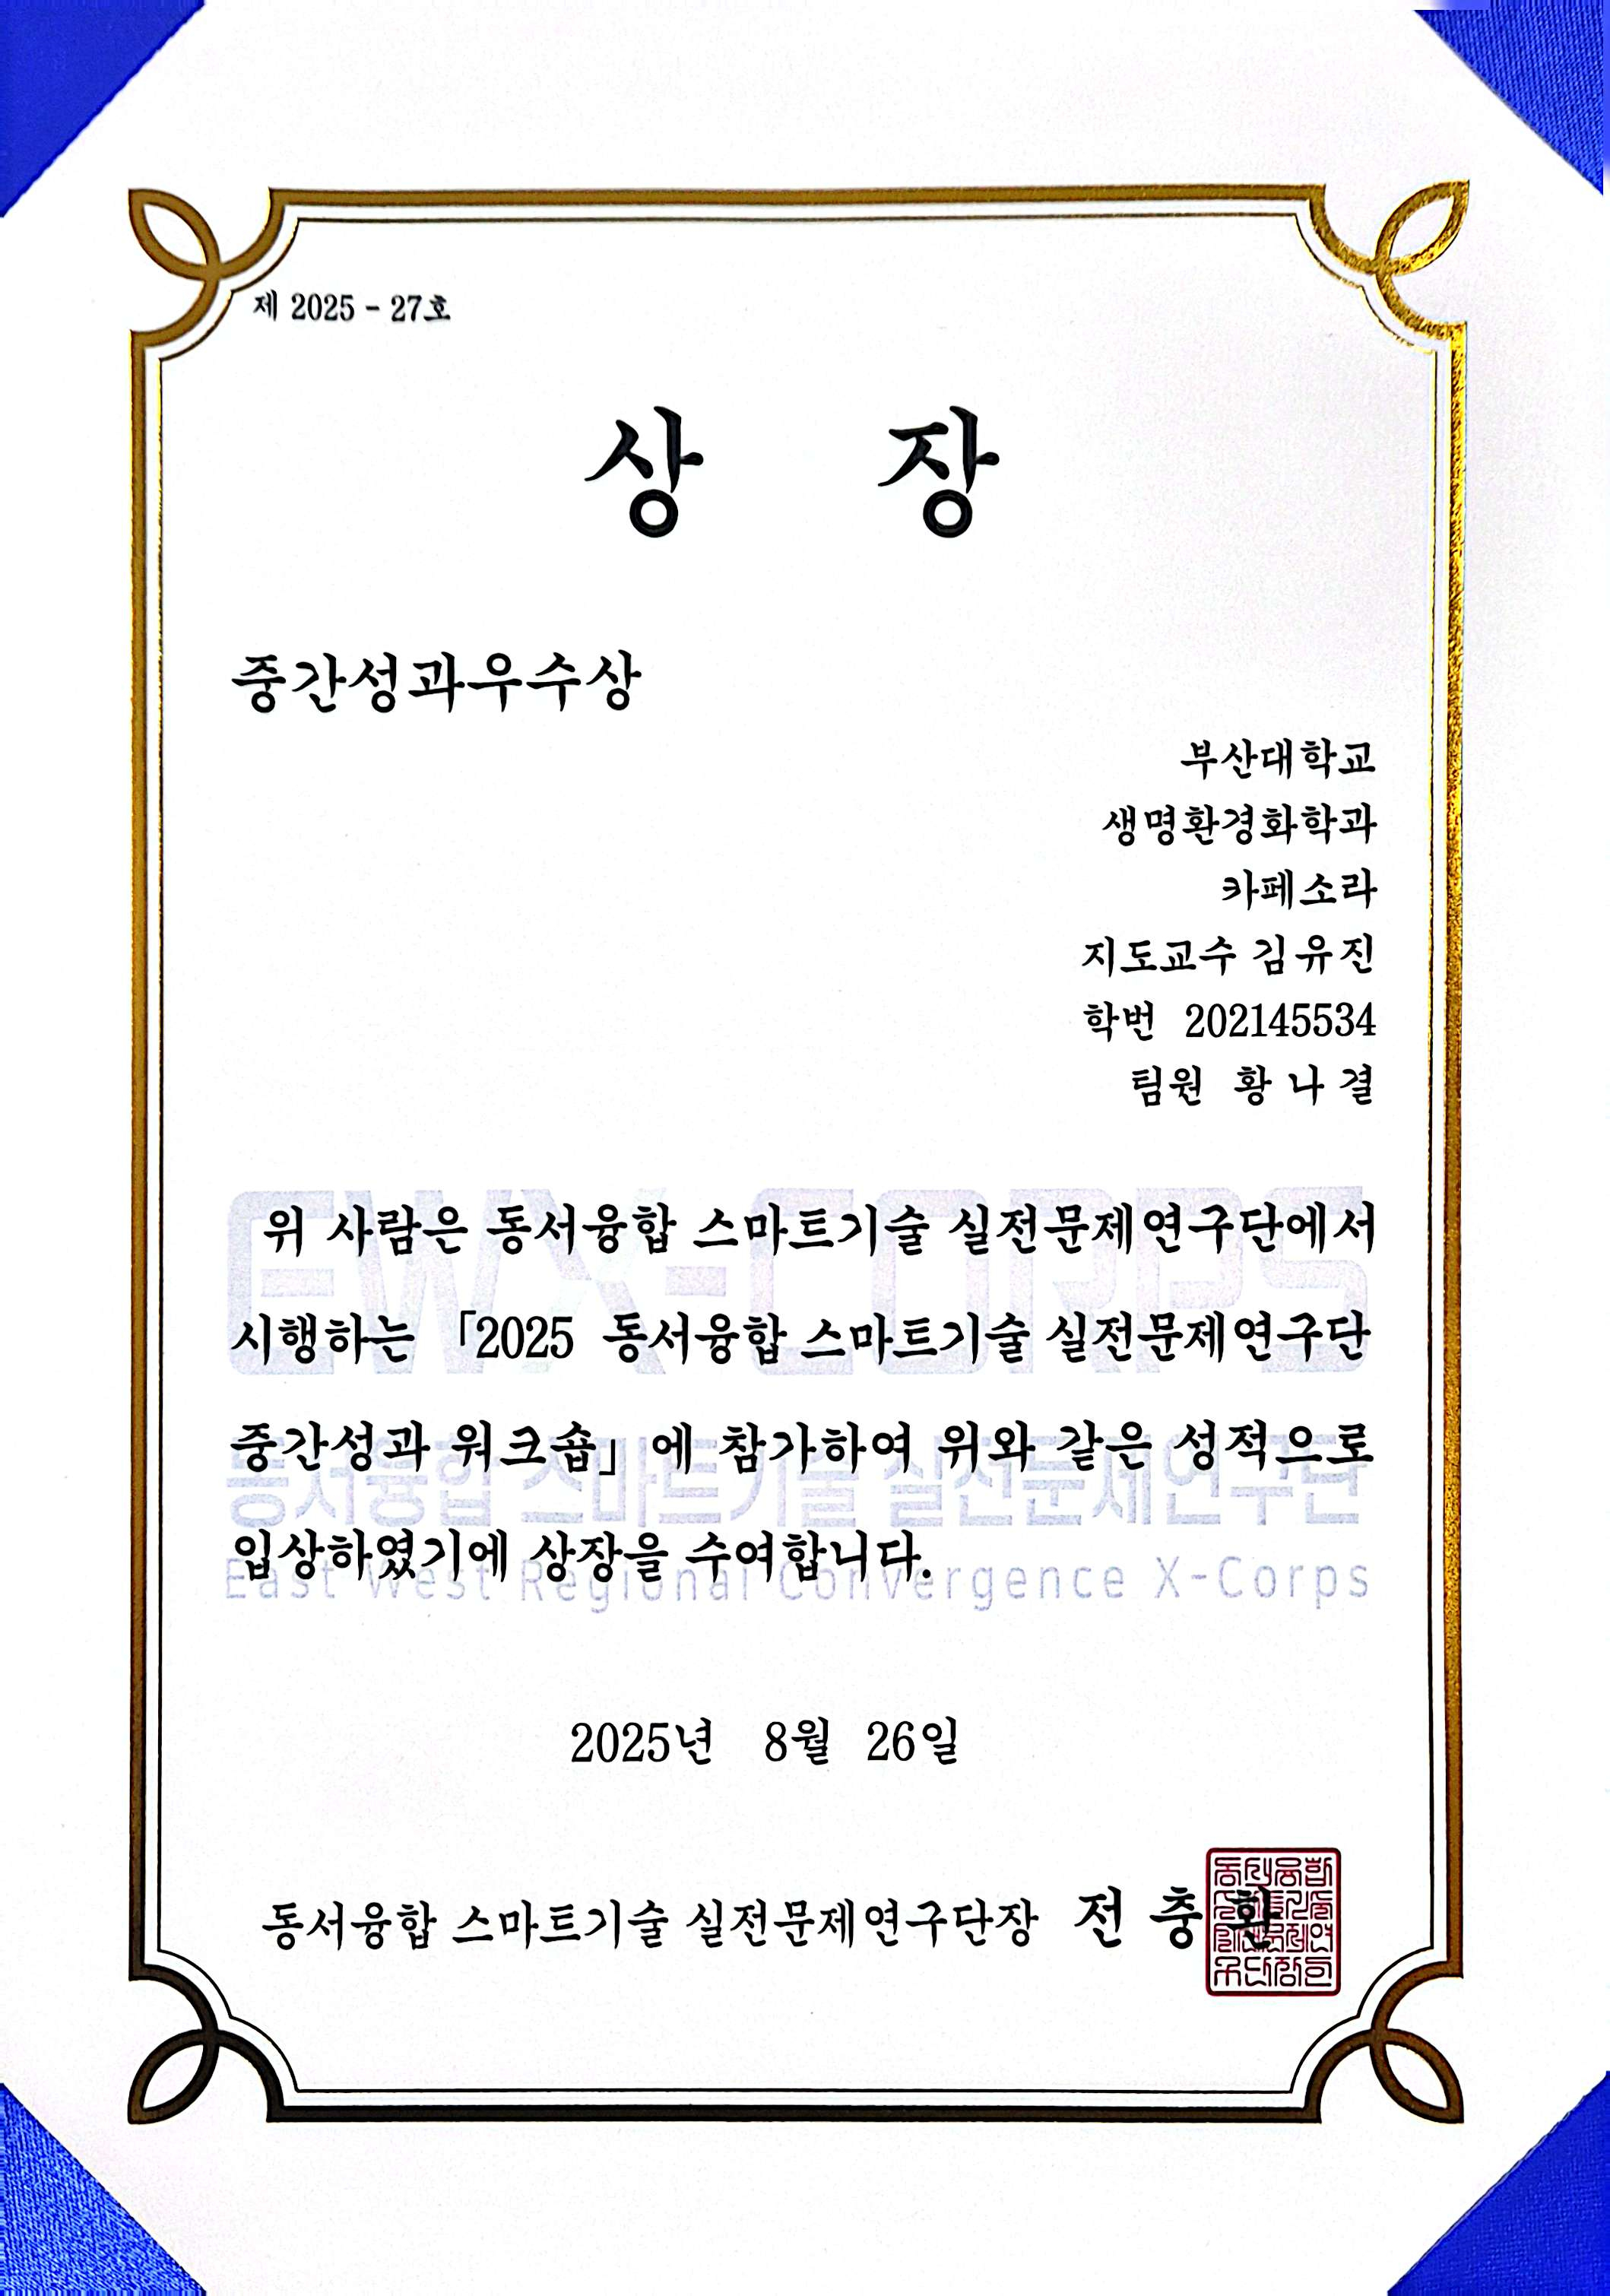 제 2025 - 27호
상 장
중간성과우수상
부산대학교
생명환경화학과
카페소라
지도교수 김유진
학번 202145534
팀원 황나결
위 사람은 동서융합 스마트기술 실전문제연구단에서
시행하는 「2025 동서융합 스마트기술 실전문제연구단
중간성과 워크숍」에 참가하여 위와 같은 성적으로
입상하였기에 상장을 수여합니다.
EWX-CORPS
동서융합 스마트기술 실전문제연구단
East West Regional Convergence X-Corps
2025년 8월 26일
동서융합 스마트기술 실전문제연구단장 전충환